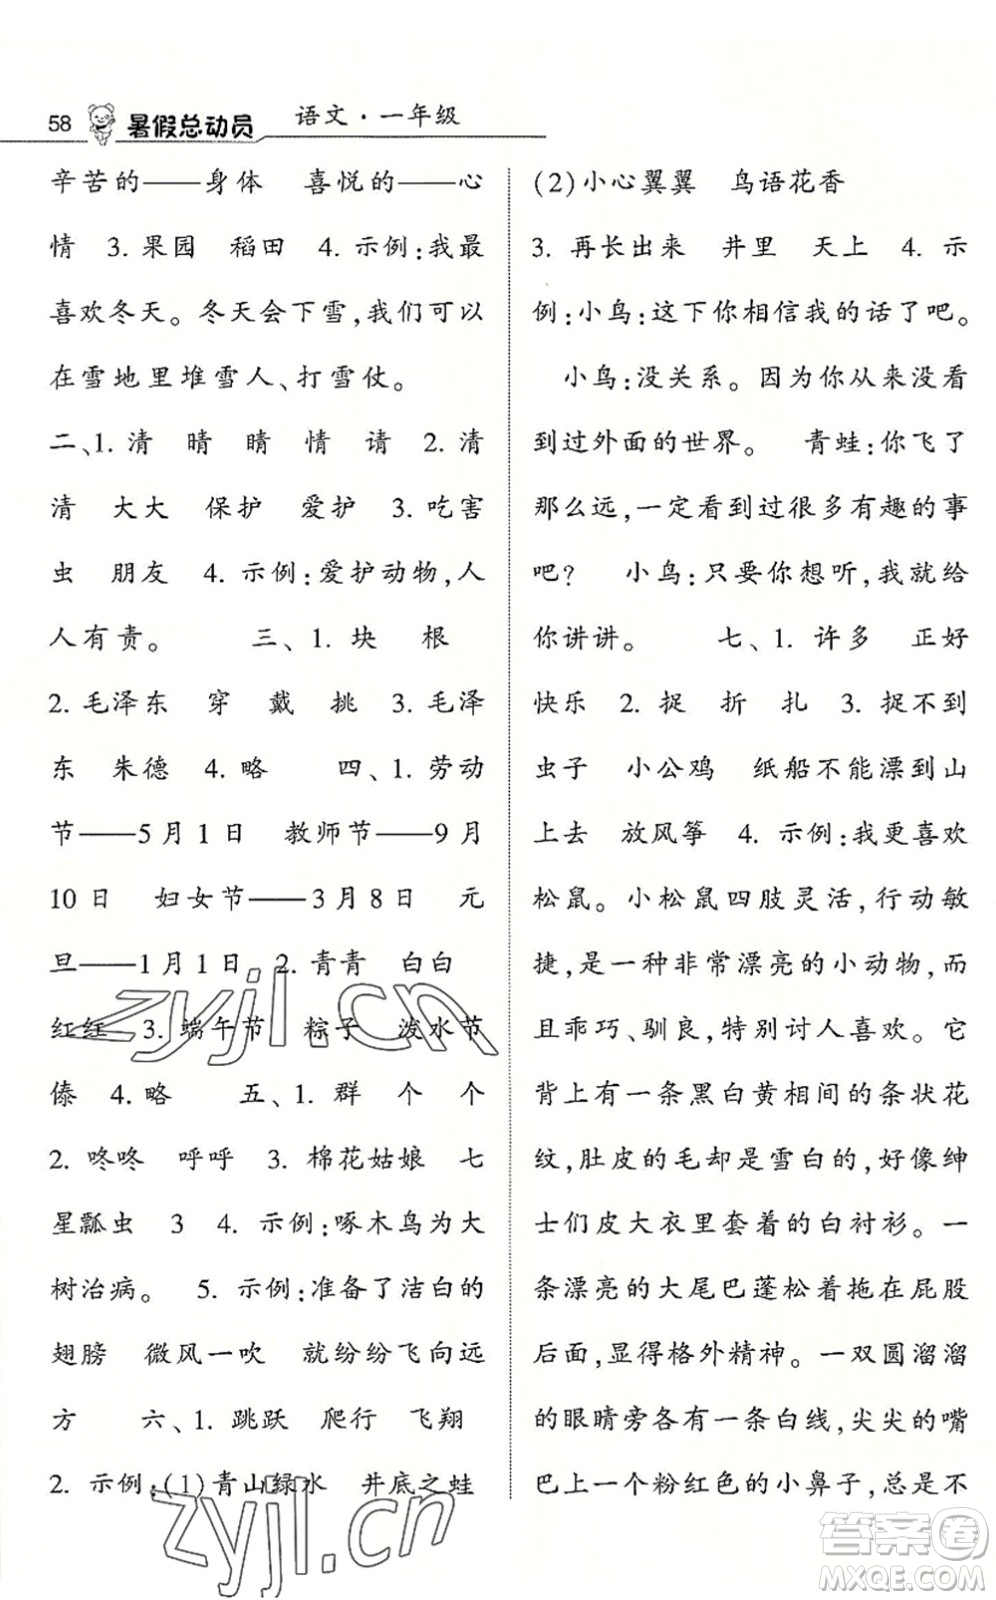 58 暑假总动员 语文·一年级
辛苦的——身体 喜悦的——心
情 3. 果园 稻田 4. 示例:我最
喜欢冬天。冬天会下雪,我们可以
在雪地里堆雪人、打雪仗。
二、1. 清 晴 睛 情 请 2. 清
清 大大 保护 爱护 3. 吃害
虫 朋友 4. 示例:爱护动物,人
人有责。 三、1. 块 根
2. 毛泽东 穿 戴 挑 3. 毛泽
东 朱德 4. 略 四、1. 劳动
节——5月1日 教师节——9月
10日 妇女节——3月8日 元
旦——1月1日 2. 青青 白白
红红 3. 端午节 粽子 泼水节
傣 4. 略 五、1. 群 个 个
2. 咚咚 呼呼 3. 棉花姑娘 七
星瓢虫 3 4. 示例:啄木鸟为大
树治病。 5. 示例:准备了洁白的
翅膀 微风一吹 就纷纷飞向远
方 六、1. 跳跃 爬行 飞翔
2. 示例:(1)青山绿水 井底之蛙
(2)小心翼翼 鸟语花香
3. 再长出来 井里 天上 4. 示
例:小鸟:这下你相信我的话了吧。
小鸟:没关系。因为你从来没看
到过外面的世界。 青蛙:你飞了
那么远,一定看到过很多有趣的事
吧? 小鸟:只要你想听,我就给
你讲讲。 七、1. 许多 正好
快乐 2. 捉 折 扎 3. 捉不到
虫子 小公鸡 纸船不能漂到山
上去 放风筝 4. 示例:我更喜欢
松鼠。小松鼠四肢灵活,行动敏
捷,是一种非常漂亮的小动物,而
且乖巧、驯良,特别讨人喜欢。它
背上有一条黑白黄相间的条状花
纹,肚皮的毛却是雪白的,好像绅
士们皮大衣里套着的白衬衫。一
条漂亮的大尾巴蓬松着拖在屁股
后面,显得格外精神。一双圆溜溜
的眼睛旁各有一条白线,尖尖的嘴
巴上一个粉红色的小鼻子,总是不
zyjl.cn
zyjl.cn
答案圈
MXQE.COM